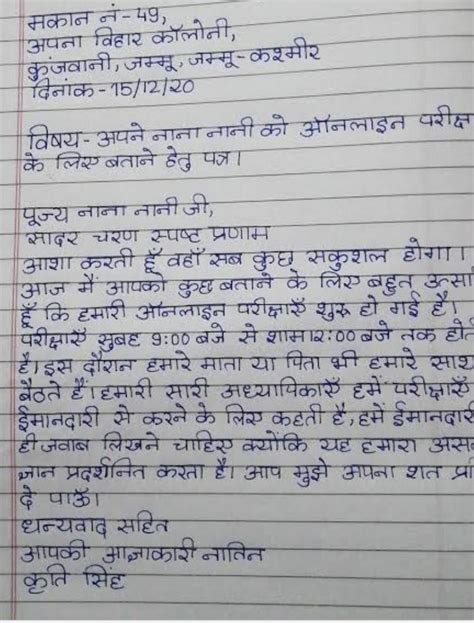 मकान नं-49,
अपना विहार कॉलोनी,
कुंजवानी, जम्मू, जम्मू-कश्मीर
दिनांक-15/12/20
विषय- अपने नाना नानी को ऑनलाइन परीक्ष
के लिए बताने हेतु पत्र।
पूज्य नाना नानी जी,
सादर चरण स्पष्ट प्रणाम
आशा करती हूँ वहाँ सब कुछ सकुशल होगा।
आज मैं आपको कुछ बताने के लिए बहुत उत्सा
हूँ कि हमारी ऑनलाइन परीक्षाएँ शुरू हो गई है।
परीक्षाएँ सुबह 9:00 बजे से शामा2:00 बजे तक होत
है। इस दौरान हमारे माता या पिता भी हमारे साथ
बैठते हैं। हमारी सारी अध्यापिकाएँ हमें परीक्षाएँ
ईमानदारी से करने के लिए कहती है, हमें ईमानदार
ही जवाब लिखने चाहिए क्योंकि यह हमारा अस
ज्ञान प्रदर्शनित करता है। आप मुझे अपना शत प्र
दे पाऊँ।
धन्यवाद सहित
आपकी आज्ञाकारी नातिन
कृति सिंह